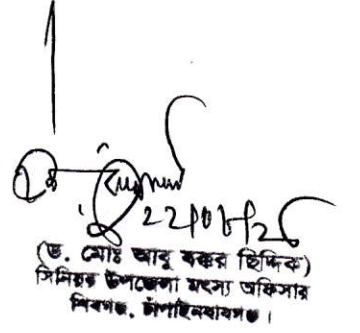 (ড. মোঃ আবু বক্কর ছিদ্দিক)
সিনিয়র উপজেলা মৎস্য অফিসার
শিবগঞ্জ, চাঁপাইনবাবগঞ্জ।